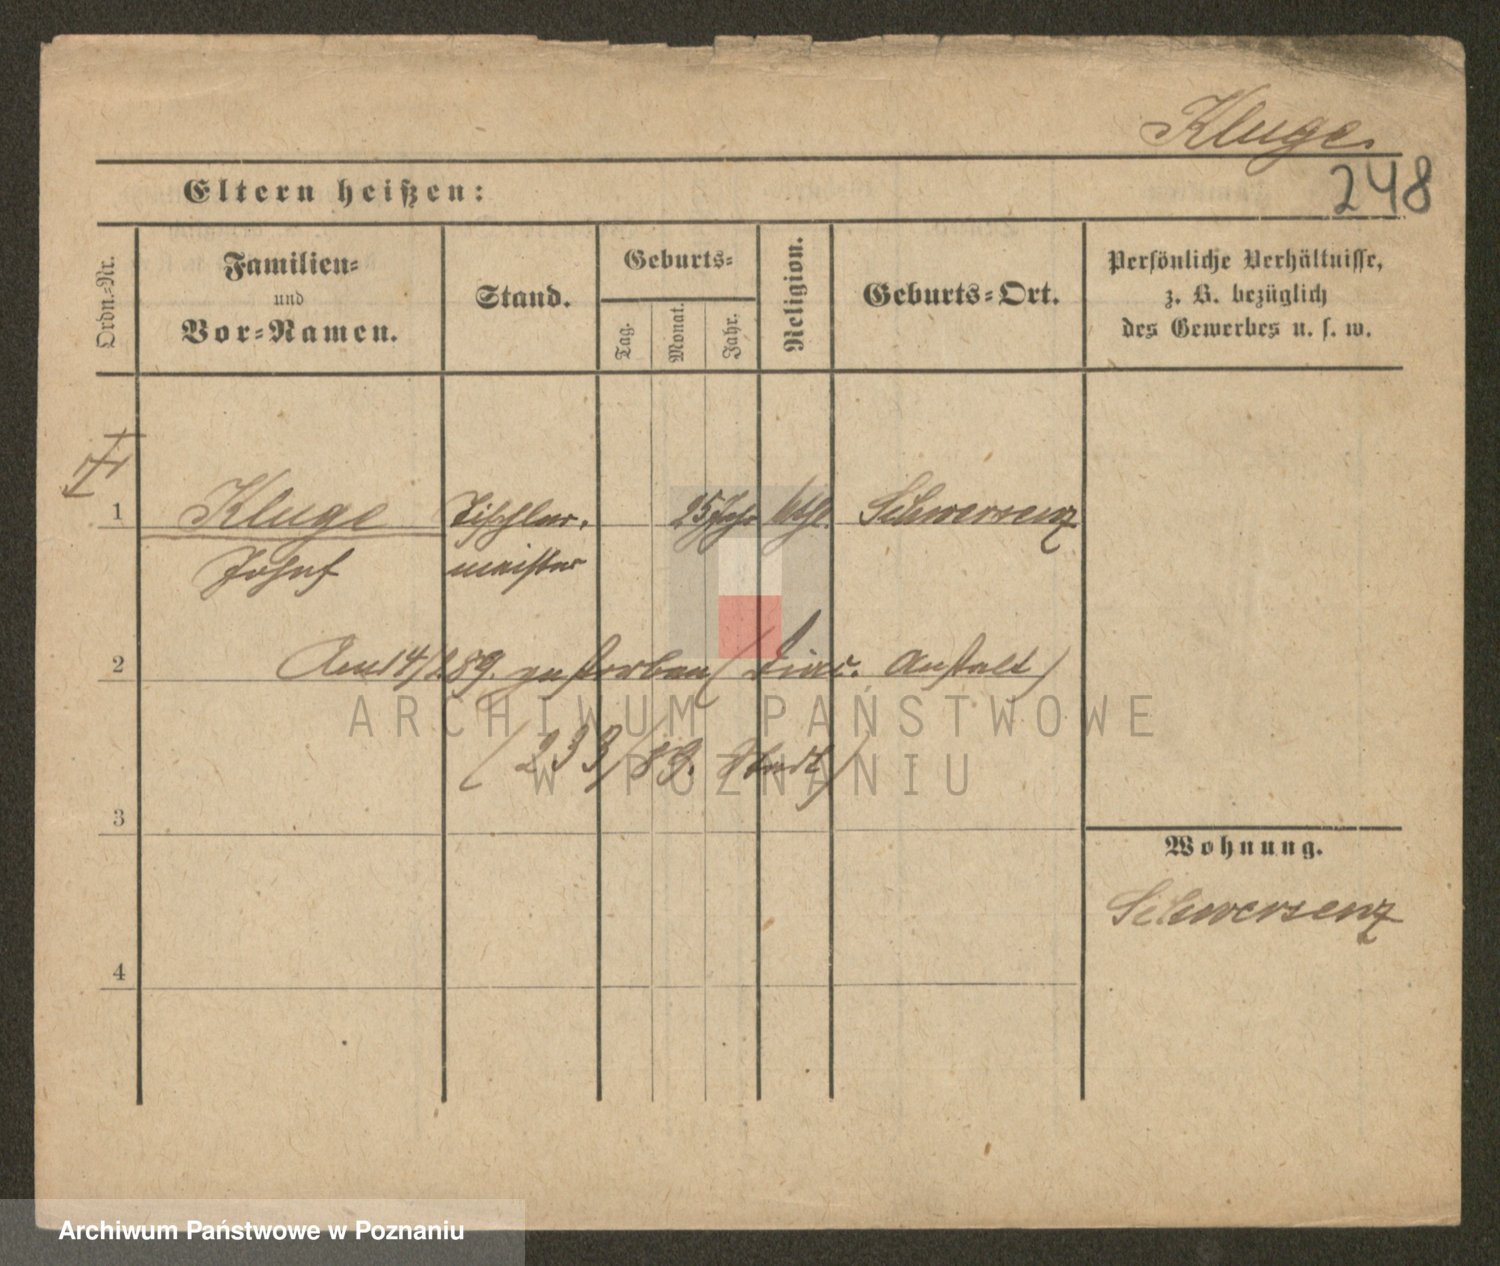 Kluge.
248
Eltern heißen:
Ordn.-Nr.
Familien-
und
Vor-Namen.
Stand.
Geburts-
Tag.
Monat.
Jahr.
Religion.
Geburts-Ort.
Persönliche Verhältnisse,
z. B. bezüglich
des Gewerbes u. s. w.
1 Kluge Tischler- 25 Jahr kthl. Schwersenz
Josef meister
2 Am 14/2 89. gestorben (Diac. Anstalt)
(233/89. Stadt)
3
Wohnung.
Schwersenz
4
ARCHIWUM PAŃSTWOWE
W POZNANIU
Archiwum Państwowe w Poznaniu